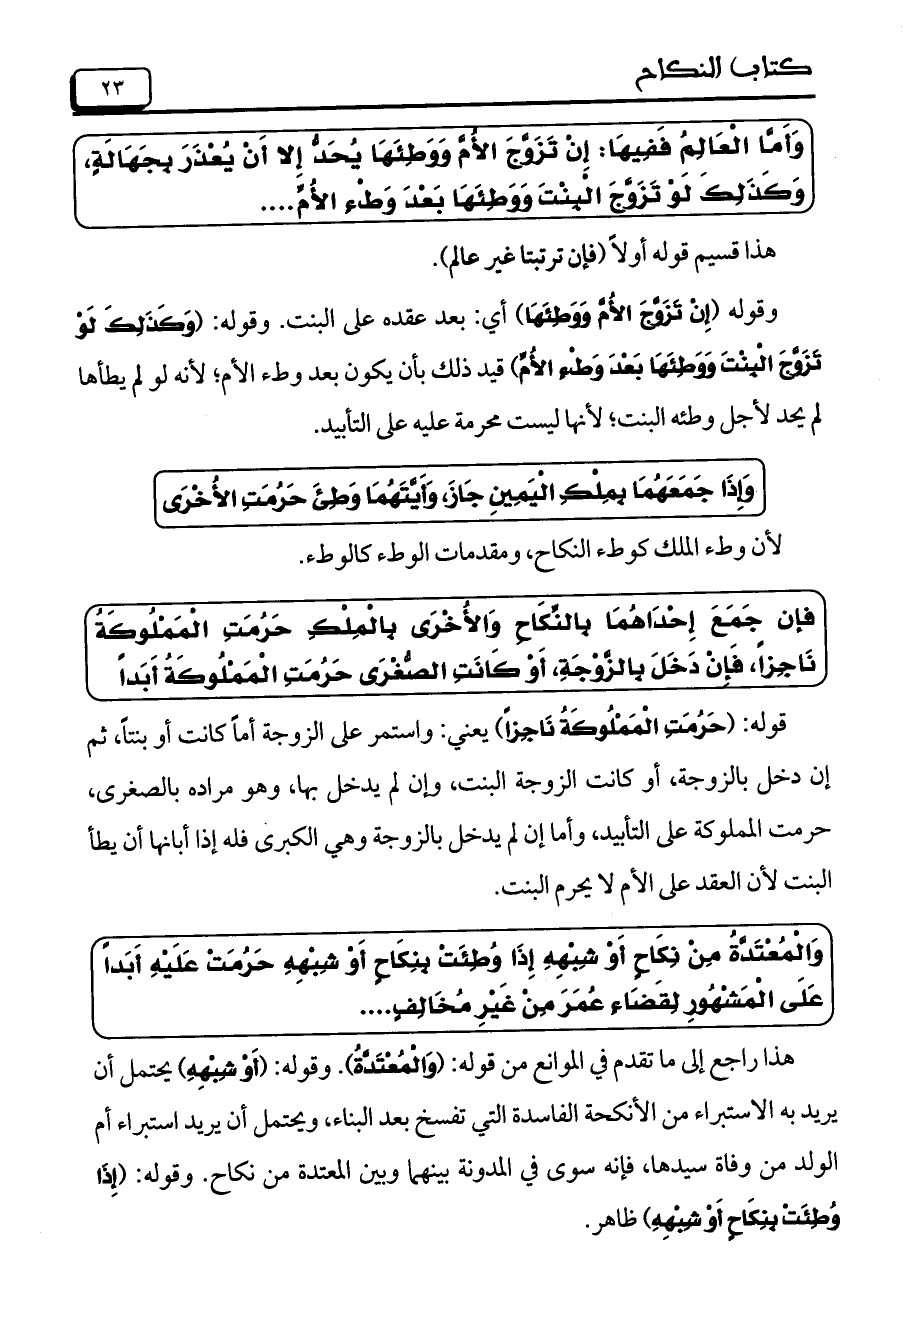 كتاب النكاح
٢٣
وَأَمَّا الْعَالِمُ فَفِيهَا: إِنْ تَزَوَّجَ الأُمَّ وَوَطِئَهَا يُحَدُّ إِلا أَنْ يُعْذَرَ بِجَهَالَةٍ،
وَكَذَلِكَ لَوْ تَزَوَّجَ الْبِنْتَ وَوَطِئَهَا بَعْدَ وَطْءِ الأُمِّ....
هذا قسيم قوله أولاً (فإن ترتبتا غير عالم).
وقوله (إِنْ تَزَوَّجَ الأُمَّ وَوَطِئَهَا) أي: بعد عقده على البنت. وقوله: (وَكَذَلِكَ لَوْ
تَزَوَّجَ الْبِنْتَ وَوَطِئَهَا بَعْدَ وَطْءِ الأُمِّ) قيد ذلك بأن يكون بعد وطء الأم؛ لأنه لو لم يطأها
لم يحد لأجل وطئه البنت؛ لأنها ليست محرمة عليه على التأبيد.
وَإِذَا جَمَعَهُمَا بِمِلْكِ الْيَمِينِ جَازَ، وَأَيَّتَهُمَا وَطِئَ حَرُمَتِ الأُخْرَى
لأن وطء الملك كوطء النكاح، ومقدمات الوطء كالوطء.
فإن جَمَعَ إِحْدَاهُمَا بِالنِّكَاحِ وَالأُخْرَى بِالْمِلْكِ حَرُمَتِ الْمَمْلُوكَةُ
نَاجِزاً، فَإِنْ دَخَلَ بِالزَّوْجَةِ، أَوْ كَانَتِ الصُّغْرَى حَرُمَتِ الْمَمْلُوكَةُ أَبَداً
قوله: (حَرُمَتِ الْمَمْلُوكَةُ نَاجِزاً) يعني: واستمر على الزوجة أماً كانت أو بنتاً، ثم
إن دخل بالزوجة، أو كانت الزوجة البنت، وإن لم يدخل بها، وهو مراده بالصغرى،
حرمت المملوكة على التأبيد، وأما إن لم يدخل بالزوجة وهي الكبرى فله إذا أبانها أن يطأ
البنت لأن العقد على الأم لا يحرم البنت.
وَالْمُعْتَدَّةُ مِنْ نِكَاحٍ أَوْ شِبْهِهِ إِذَا وُطِئَتْ بِنِكَاحٍ أَوْ شِبْهِهِ حَرُمَتْ عَلَيْهِ أَبَداً
عَلَى الْمَشْهُورِ لِقَضَاءِ عُمَرَ مِنْ غَيْرِ مُخَالِفٍ....
هذا راجع إلى ما تقدم في الموانع من قوله: (وَالْمُعْتَدَّةُ). وقوله: (أَوْ شِبْهِهِ) يحتمل أن
يريد به الاستبراء من الأنكحة الفاسدة التي تفسخ بعد البناء، ويحتمل أن يريد استبراء أم
الولد من وفاة سيدها، فإنه سوى في المدونة بينهما وبين المعتدة من نكاح. وقوله: (إِذَا
وُطِئَتْ بِنِكَاحٍ أَوْ شِبْهِهِ) ظاهر.